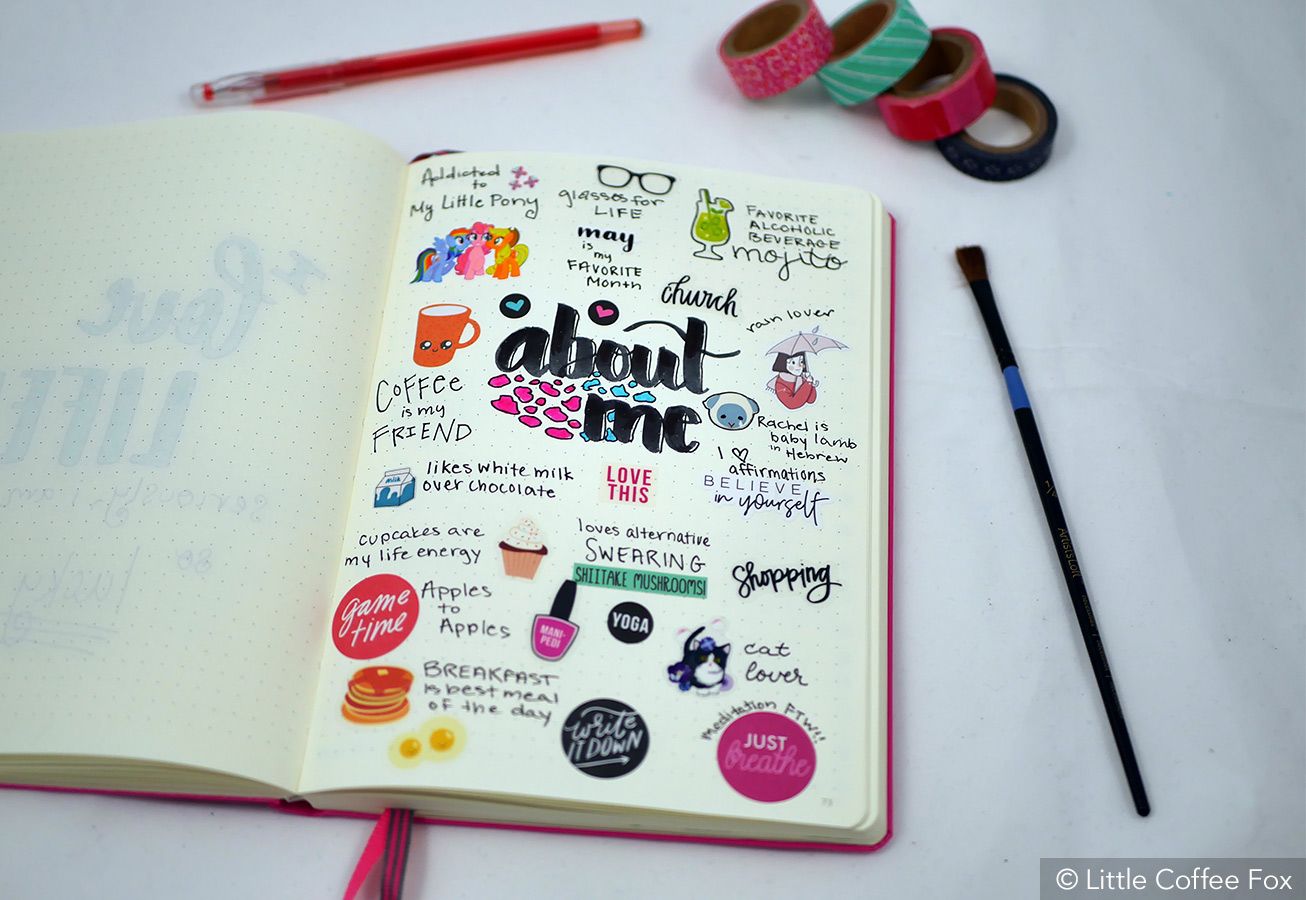 Addicted
to
My Little Pony
glasses for
LIFE
FAVORITE
ALCOHOLIC
BEVERAGE
mojito
may
is
my
FAVORITE
Month
church
rain lover
about
me
COFFEE
is my
FRIEND
Rachel is
baby lamb
in
Hebrew
milk
likes white milk
over chocolate
LOVE
THIS
I ♡
affirmations
BELIEVE
in yourself
cupcakes are
my life energy
loves alternative
SWEARING
SHIITAKE MUSHROOMS!
shopping
game
time
Apples
to
Apples
MANI-
PEDI
YOGA
cat
lover
BREAKFAST
is best meal
of the day
write
IT DOWN
meditation FTW!!
JUST
breathe
love
LIFE
seriously, i am
so
lucky
© Little Coffee Fox